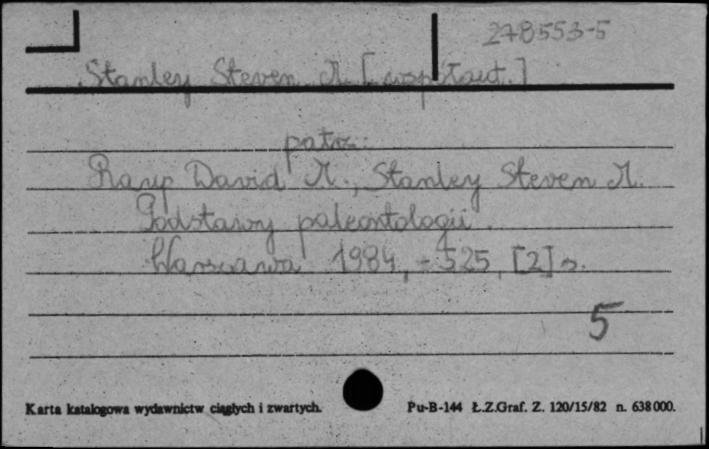 278553-5
Stanley Steven M. [współaut.]
patrz:
Raup David M., Stanley Steven M.
Podstawy paleontologii.
Warszawa 1984, - 525, [2] s.
5
Karta katalogowa wydawnictw ciągłych i zwartych. Pu-B-144 Ł.Z.Graf. Z. 120/15/82 n. 638000.